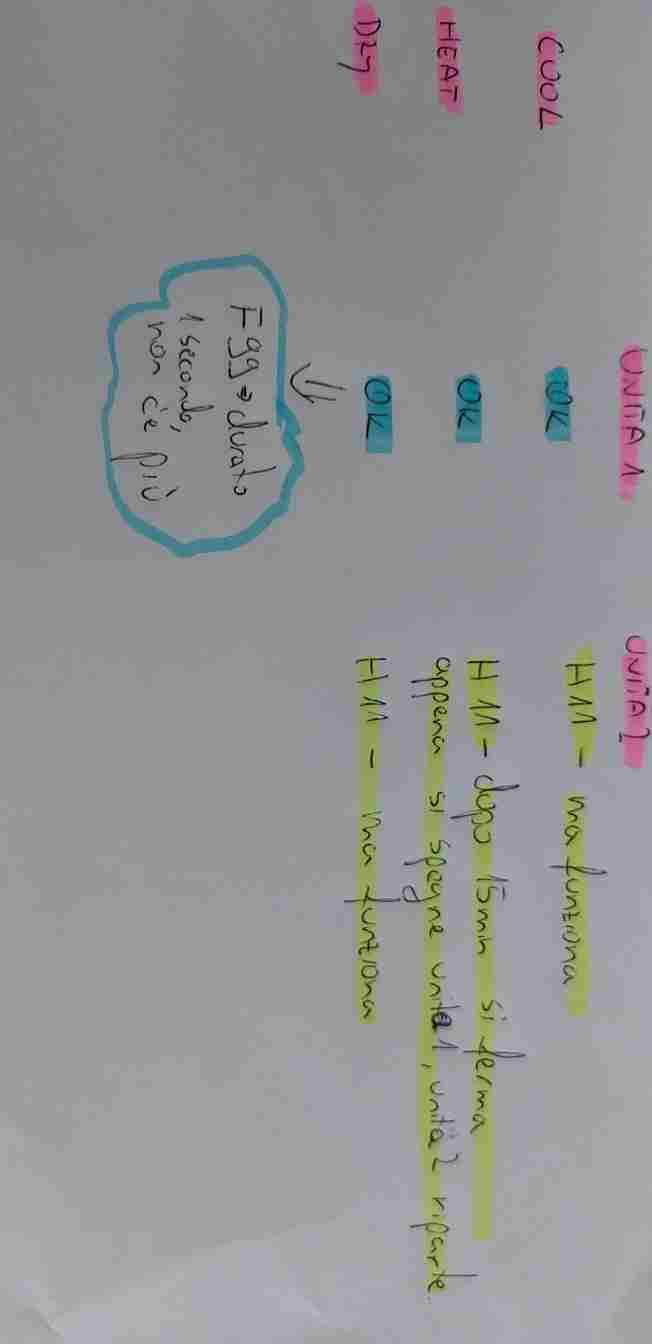 UNITA 1 UNITA 2
COOL OK H11 - ma funziona
HEAT OK H11 - dopo 15min si ferma
appena si spegne unita1, unità2 riparte
DRY OK H11 - ma funziona
F99 → durato
1 secondo,
non c'e più